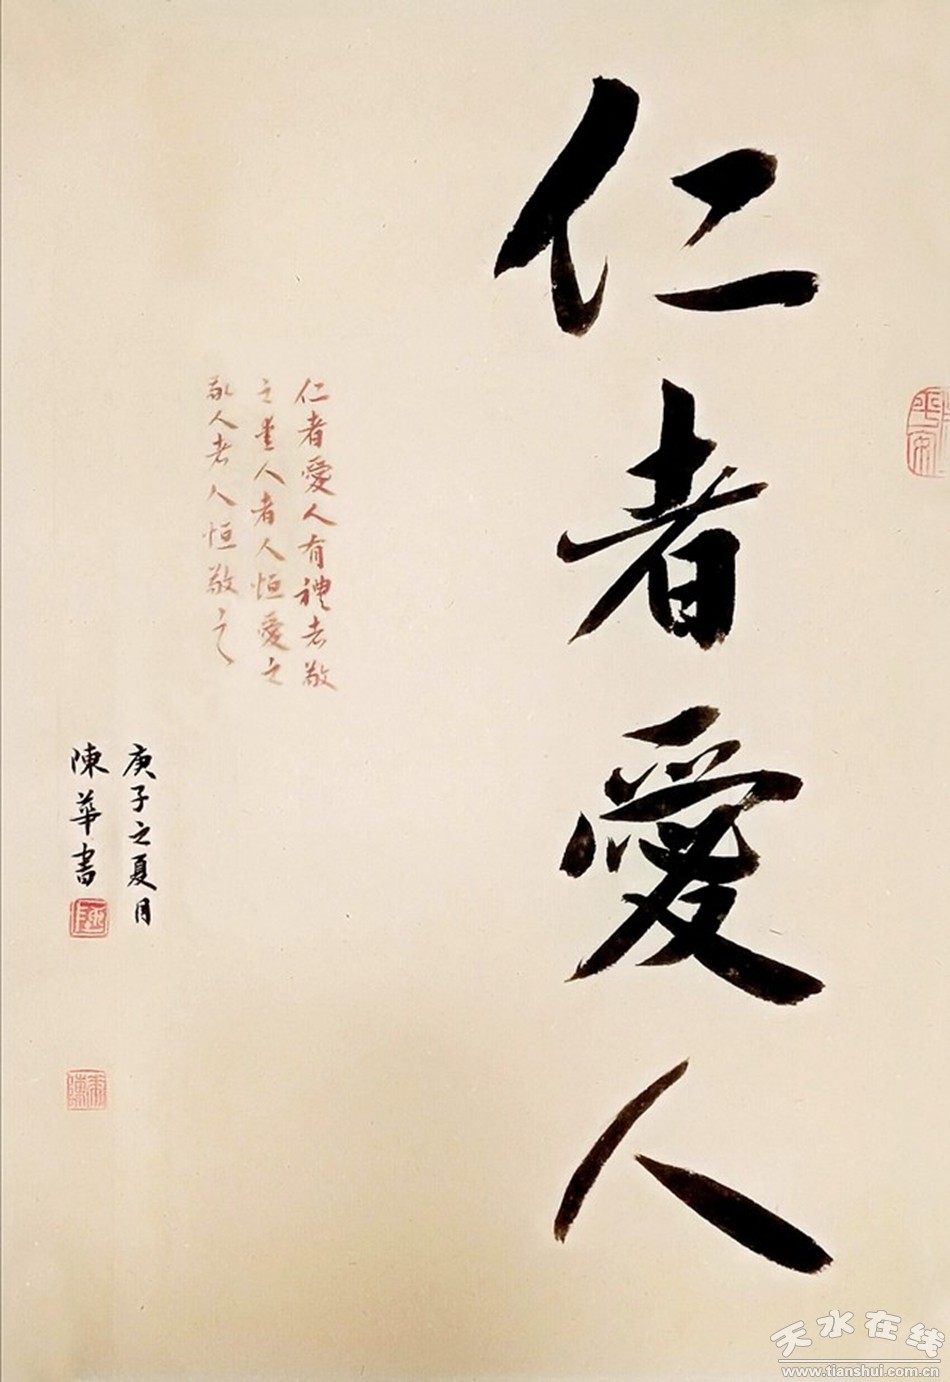 仁者愛人
仁者愛人有禮者敬
之愛人者人恒愛之
敬人者人恒敬之
庚子之夏月
陳華書
天水在线
www.tianshui.com.cn